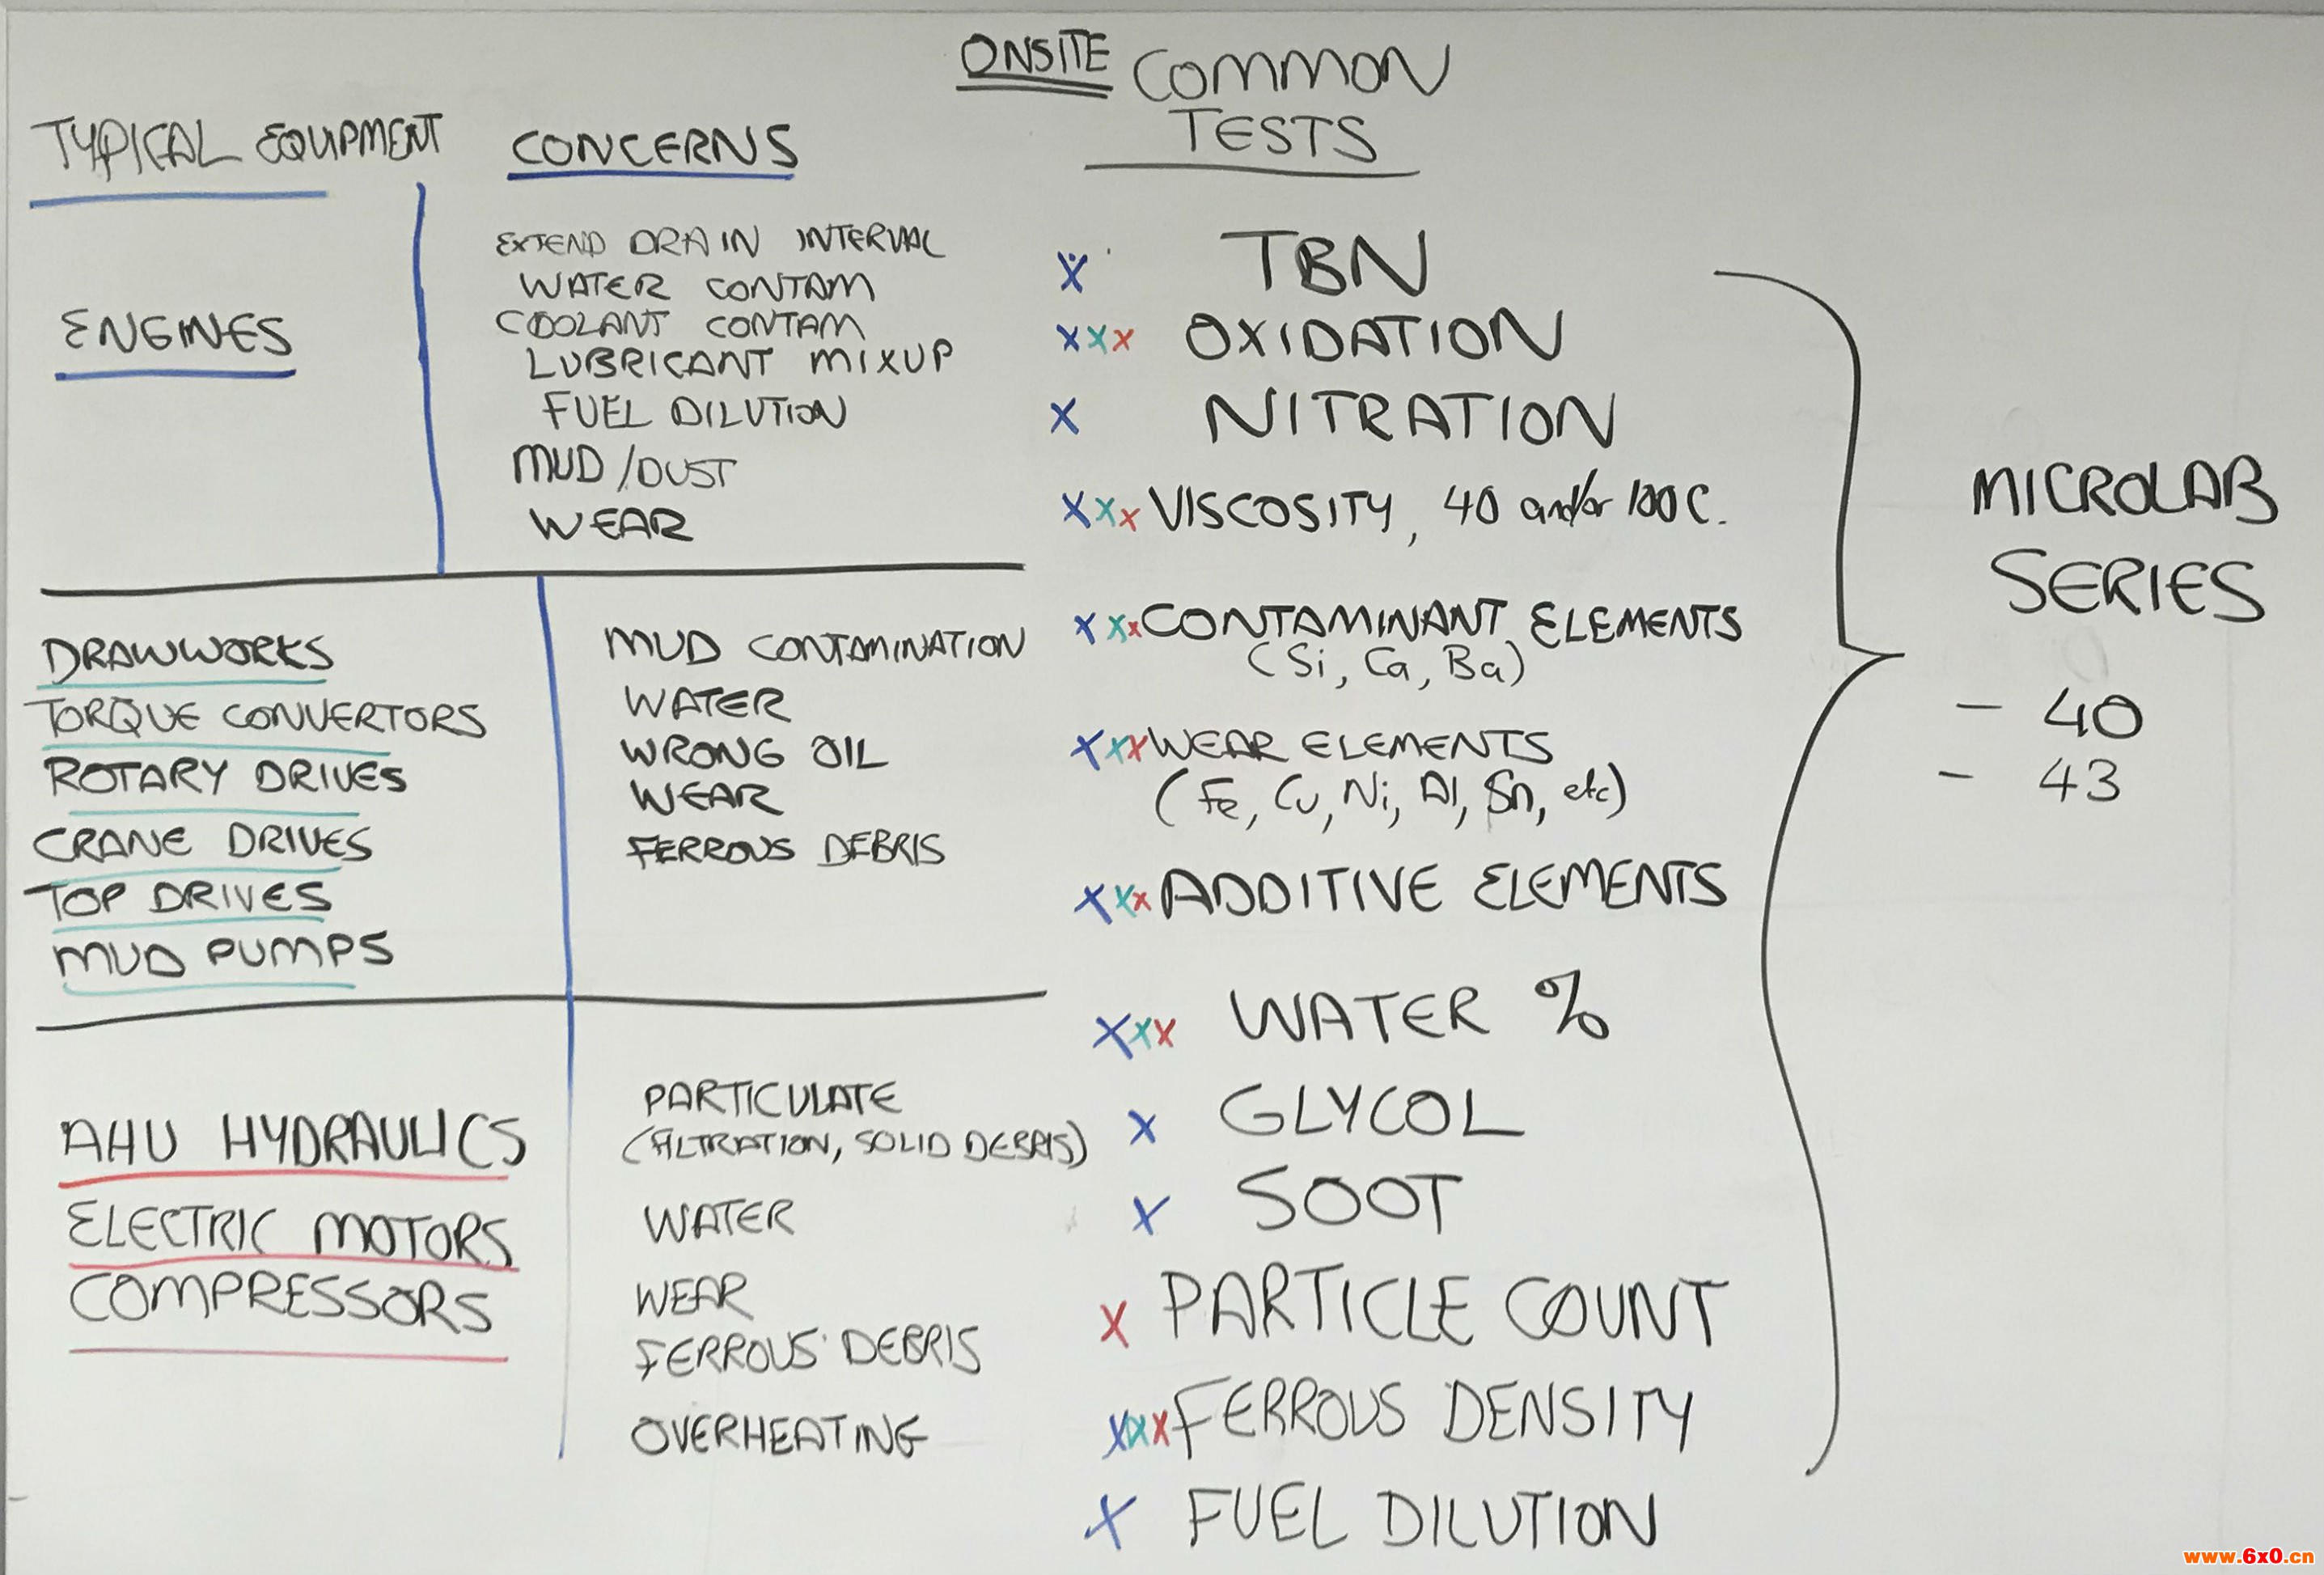 ONSITE COMMON
TESTS
TYPICAL EQUIPMENT
CONCERNS
ENGINES
EXTEND DRAIN INTERVAL
WATER CONTAM
COOLANT CONTAM
LUBRICANT MIXUP
FUEL DILUTION
MUD/DUST
WEAR
DRAWWORKS
TORQUE CONVERTORS
ROTARY DRIVES
CRANE DRIVES
TOP DRIVES
MUD PUMPS
MUD CONTAMINATION
WATER
WRONG OIL
WEAR
FERROUS DEBRIS
AHU HYDRAULICS
ELECTRIC MOTORS
COMPRESSORS
PARTICULATE
(FILTRATION, SOLID DEBRIS)
WATER
WEAR
FERROUS DEBRIS
OVERHEATING
X TBN
XXX OXIDATION
X NITRATION
XXX VISCOSITY, 40 and/or 100C.
XXX CONTAMINANT ELEMENTS
(Si, Ca, Ba)
XXX WEAR ELEMENTS
(Fe, Cu, Ni, Al, Sn, etc)
XXX ADDITIVE ELEMENTS
XXX WATER %
X GLYCOL
X SOOT
X PARTICLE COUNT
XXX FERROUS DENSITY
X FUEL DILUTION
MICROLAB
SERIES
- 40
- 43
www.6x0.cn